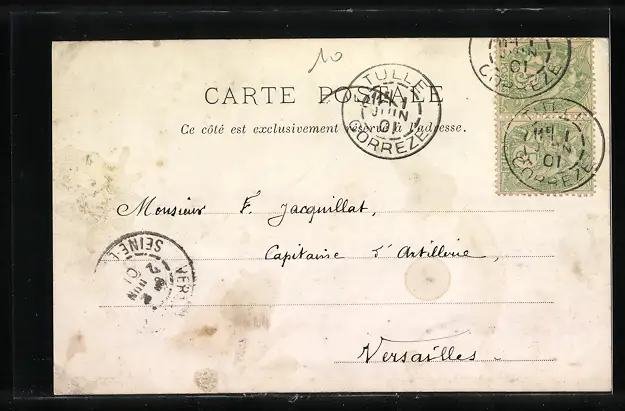 10
TULLE
JUIN
01
CORREZE
JUIN
01
CORREZE
CARTE POSTALE
Ce côté est exclusivement réservé à l'adresse.
TULLE
JUIN
01
CORREZE
Monsieur F. Jacquillat,
Capitaine d'Artillerie,
SEINE
JUIN
01
Versailles.